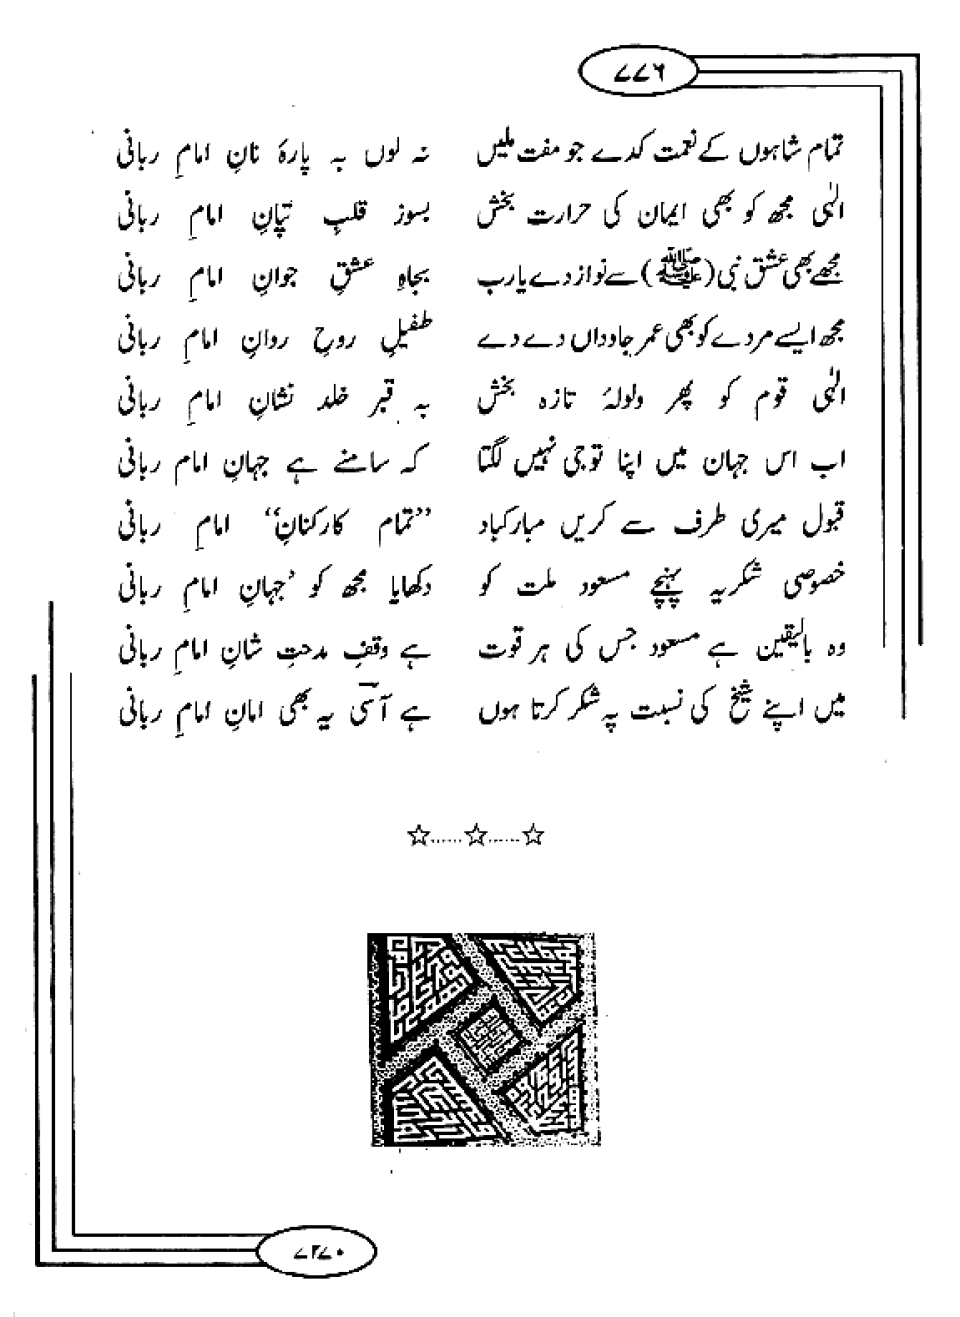 ۷۷۶
تمام شاہوں کے نعمت کدے جو مفت ملیں نہ لوں بہ پارۂ نانِ امامِ ربانی
الٰہی مجھ کو بھی ایمان کی حرارت بخش بسوز قلبِ تپانِ امامِ ربانی
مجھے بھی عشق نبی (ﷺ) سے نواز دے یارب بجاہِ عشقِ جوانِ امامِ ربانی
مجھ ایسے مردے کو بھی عمر جاوداں دے دے طفیلِ روحِ روانِ امامِ ربانی
الٰہی قوم کو پھر ولولۂ تازہ بخش بہ قبر خلد نشانِ امامِ ربانی
اب اس جہان میں اپنا تو جی نہیں لگتا کہ سامنے ہے جہانِ امام ربانی
قبول میری طرف سے کریں مبارکباد ”تمام کارکنانِ“ امامِ ربانی
خصوصی شکریہ پہنچے مسعود ملت کو دکھایا مجھ کو ’جہانِ امامِ ربانی
وہ بالیقین ہے مسعود جس کی ہر قوت ہے وقفِ مدحتِ شانِ امامِ ربانی
میں اپنے شیخ کی نسبت پہ شکر کرتا ہوں ہے آسیؔ یہ بھی امانِ امامِ ربانی
☆......☆......☆